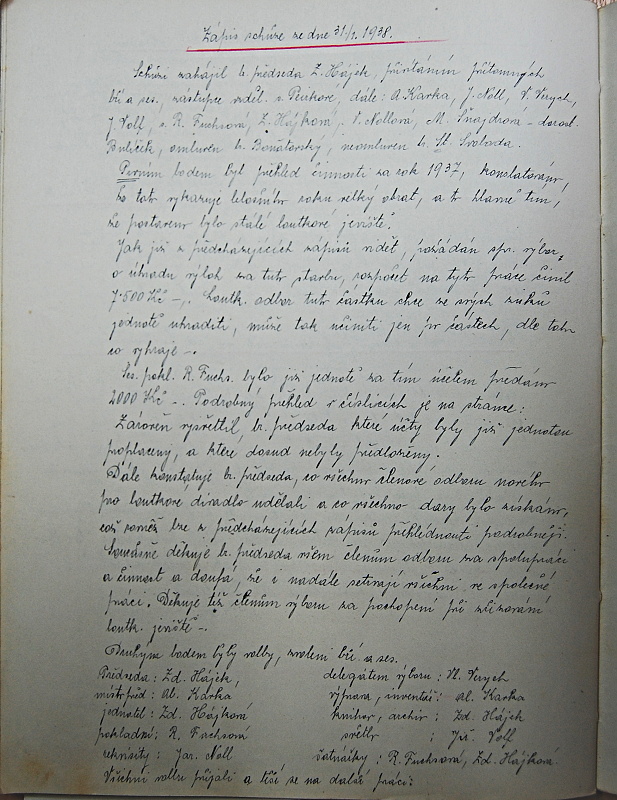 Zápis schůze ze dne 31./1. 1938.
Schůzi zahájil br. předseda Z. Hájek, přivítáním přítomných
bří a ses., zástupce vzděl. s. Pečikové, dále: A. Karka, J. Noll, V. Verych,
J. Volf, s. R. Fuchsová, Z. Hájková, V. Nollová, M. Šnajdrová - dorost.
Bulíček, omluven br. Bonatovský, neomluven br. St. Svoboda.
Prvním bodem byl přehled činnosti za rok 1937, konstatováno,
že tato vykazuje letošního roku velký obrat, a to hlavně tím,
že postaveno bylo stálé loutkové jeviště.
Jak již z předcházejících zápisů vidět, požádán spr. výbor,
o úhradu výloh za tuto stavbu, rozpočet na tyto práce činil
7.500 Kč -. Loutk. odbor tuto částku chce ze svých zisků
jednotě uhraditi, může tak učiniti jen po částech, dle toho
co vyhraje -.
Ses. pokl. R. Fuchs. bylo již jednotě za tím účelem předáno
2000 Kč -. Podrobný přehled v číslicích je na straně:
Zároveň vysvětlil br. předseda které účty byly již jednotou
proplaceny, a které dosud nebyly předloženy.
Dále konstatuje br. předseda, co všichni členové odboru nového
pro loutkové divadlo udělali a co všechno dary bylo získáno,
což rovněž lze z předcházejících zápisů přehlédnouti podrobněji.
Současně děkuje br. předseda všem členům odboru za spolupráci
a činnost a doufá, že i nadále setrvají všichni ve společné
práci. Děkuje též členům výboru za pochopení při zřizování
loutk. jeviště -.
Druhým bodem byly volby, zvoleni bří a ses.
Předseda: Zd. Hájek, delegátem výboru: Vl. Verych
místopřed: Al. Karka výprava, inventář: Al. Karka
jednatel: Zd. Hájková knihov, archiv: Zd. Hájek
pokladní: R. Fuchsová světlo : Jar. Volf
rekvisity: Jar. Noll šatnářky: R. Fuchsová, Zd. Hájková.
Všichni volbu přijali a těší se na další práci: